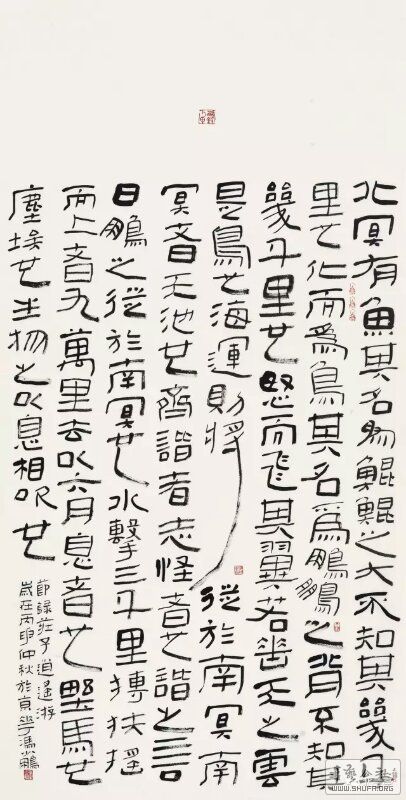 北冥有魚其名為鯤鯤之大不知其幾千
里也化而為鳥其名為鵬鵬之背不知其
幾千里也怒而飛其翼若垂天之雲
是鳥也海運則將從於南冥南
冥者天池也齊諧者志怪者也諧之言
曰鵬之從於南冥也水擊三千里摶扶搖
而上者九萬里去以六月息者也野馬也
塵埃也生物之以息相吹也
節錄莊子逍遙游
歲在丙申仲秋於京華馮
WWW.SHUFA.ORG